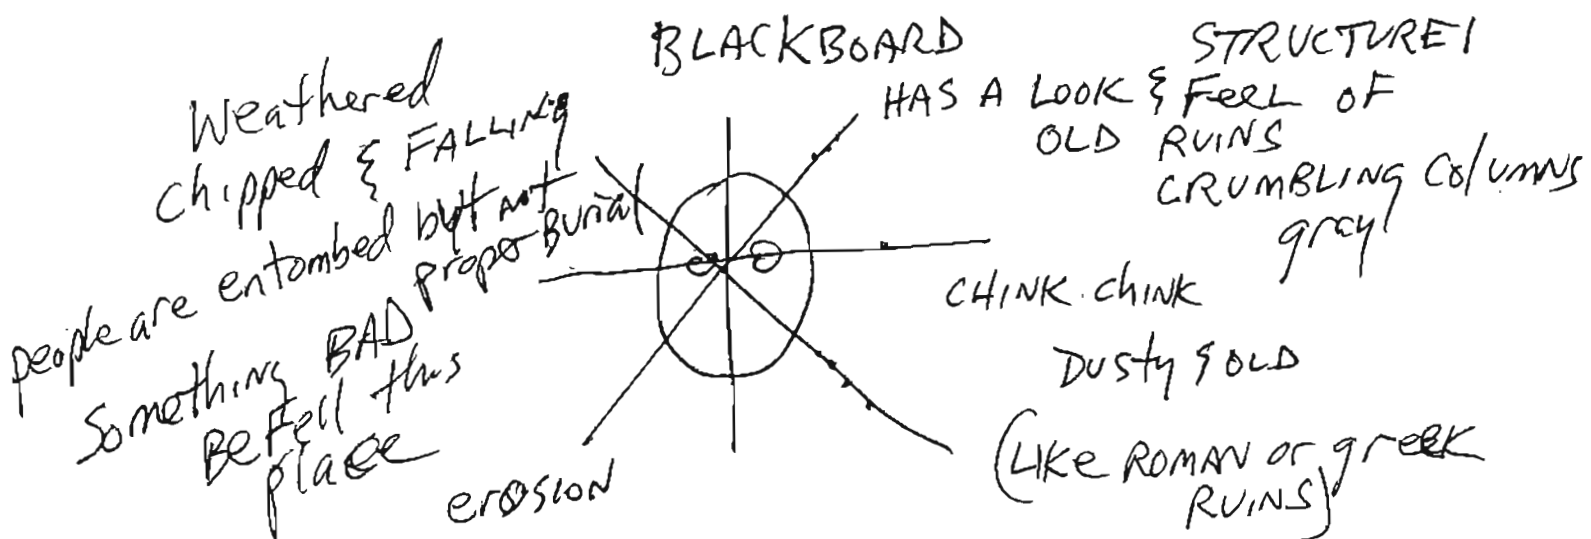 BLACKBOARD
STRUCTURE1
HAS A LOOK & FEEL OF
OLD RUINS
CRUMBLING COLUMNS
gray
CHINK.CHINK
DUSTY & OLD
(LIKE ROMAN or greek
RUINS)
Weathered
chipped & FALLING
people are entombed but not
proper Burial
Something BAD
BeFell this
place
erosion